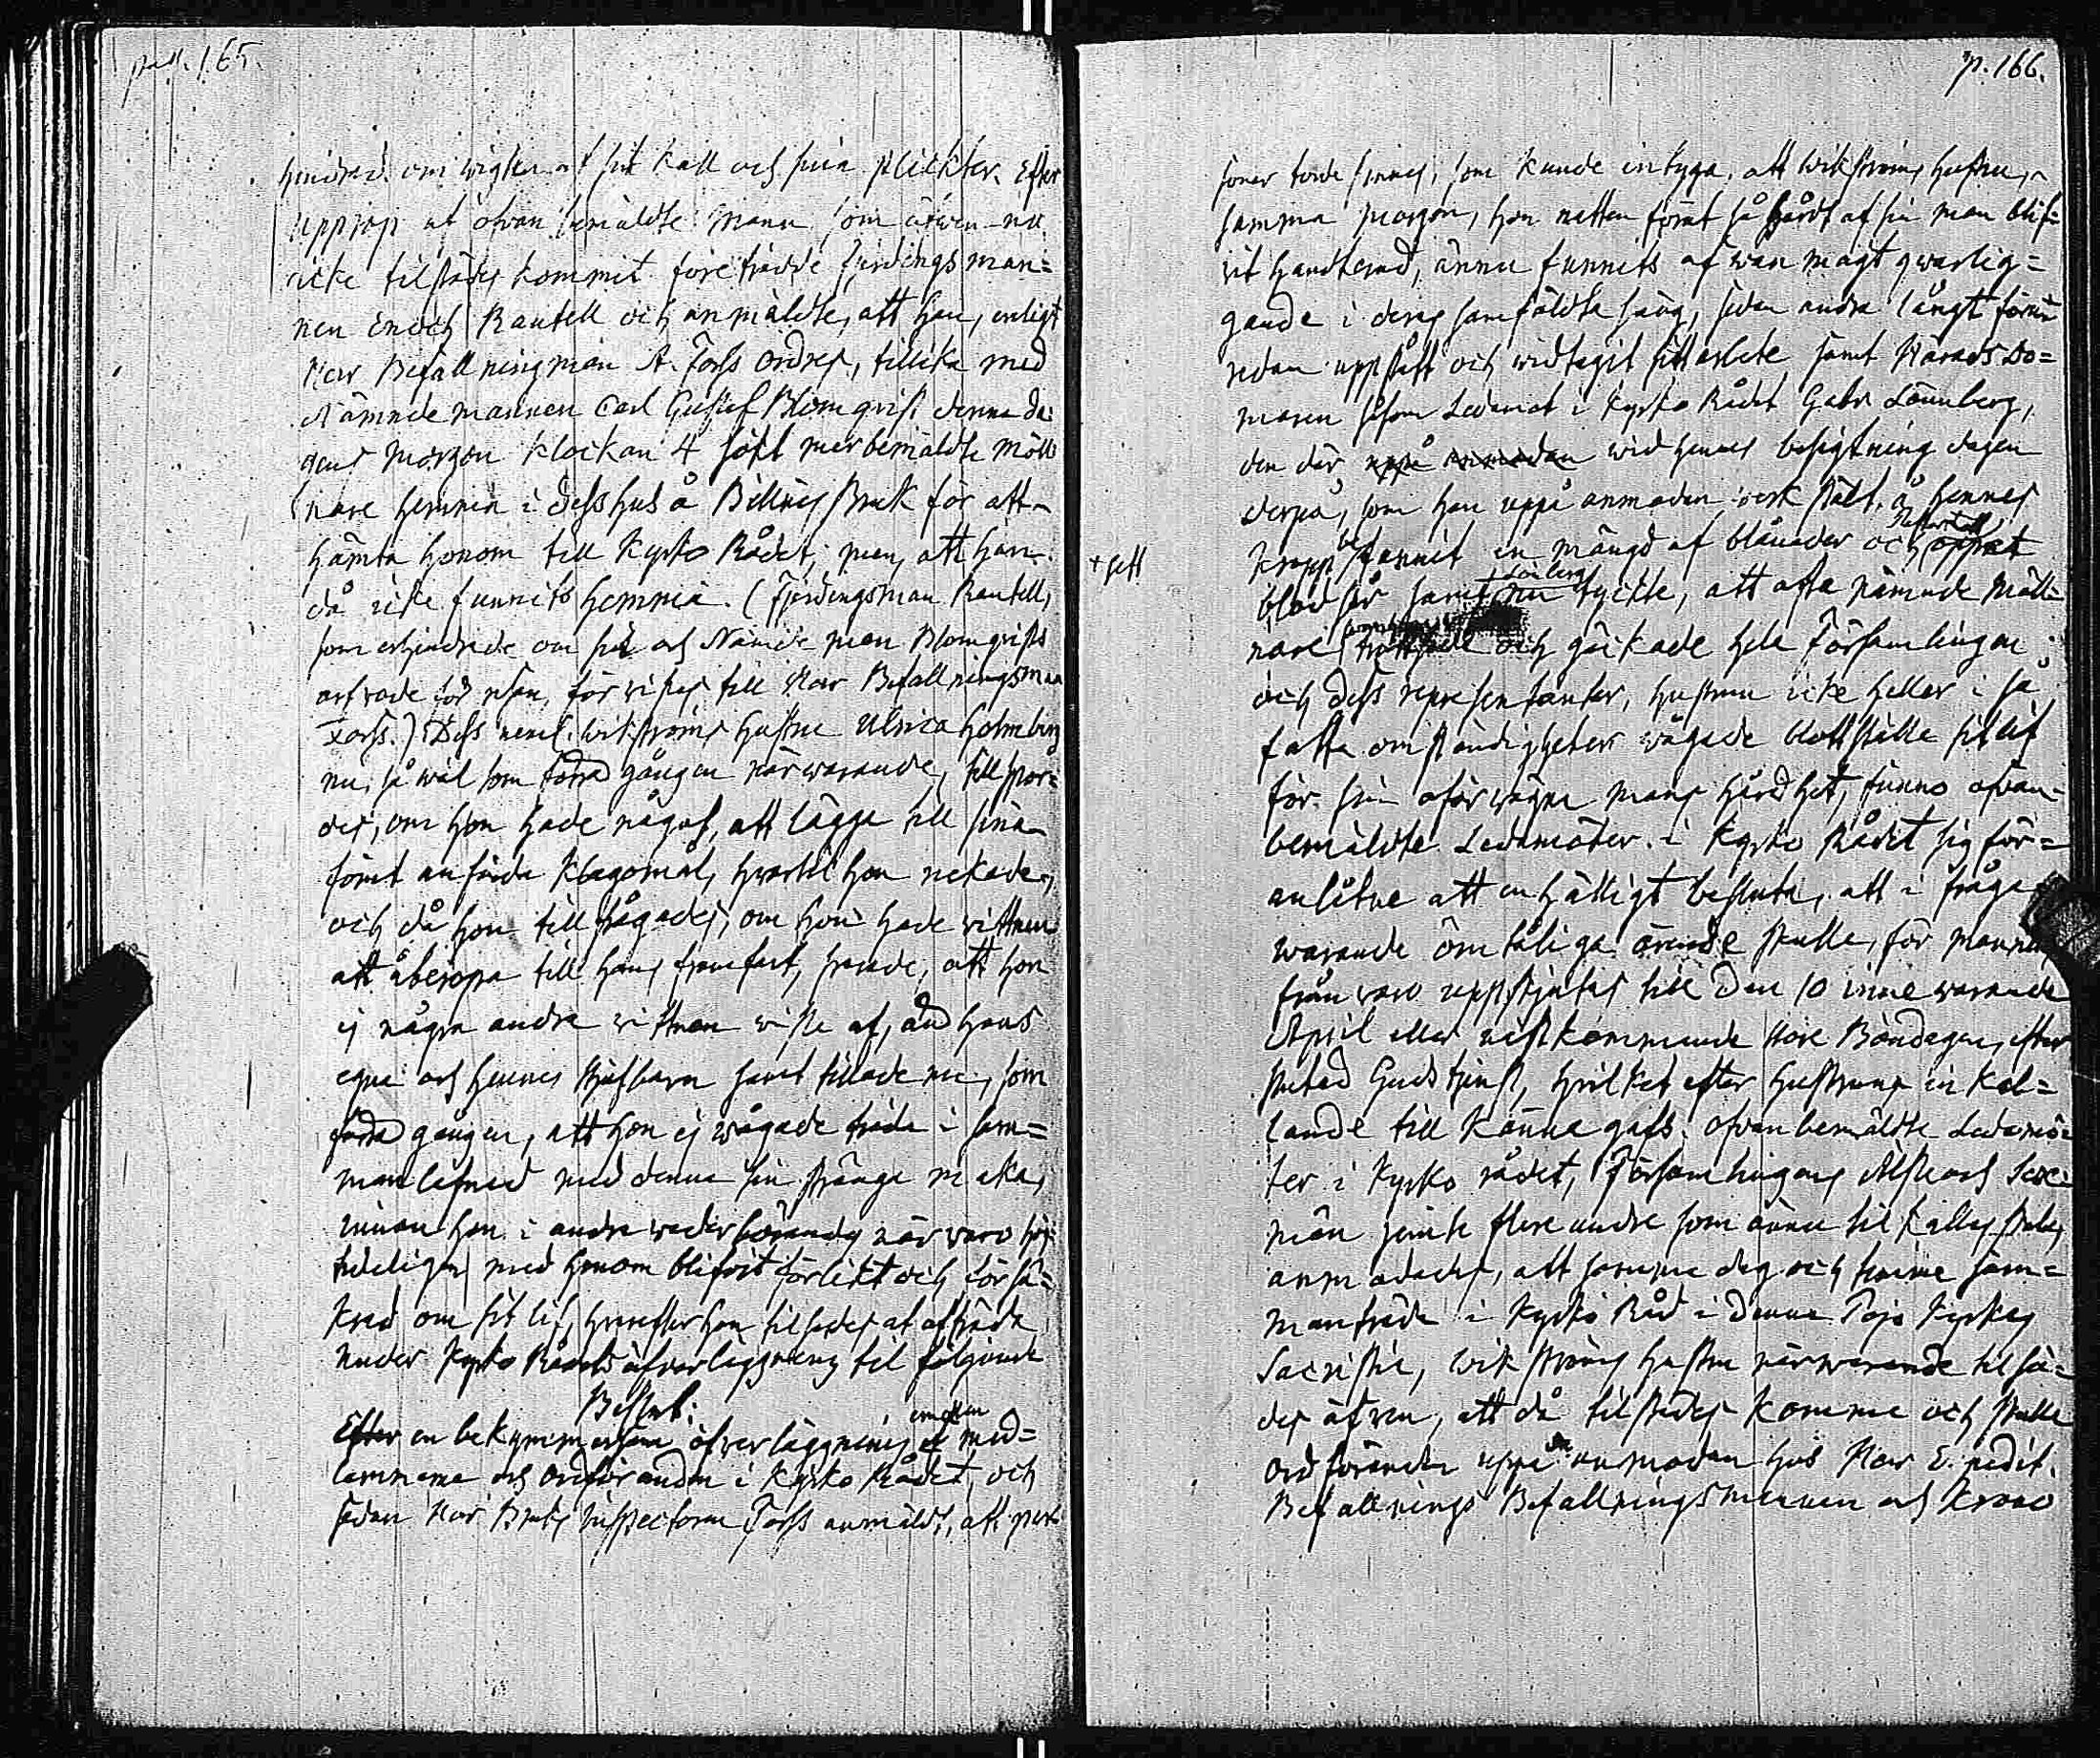 pag. 165.
hindrad. om wigten af sit kall och sina plickter. Efter
upprop af ofvanbemäldte Mann som äfwen nu
icke tilstädes kommit företrädde Fjerdingsman=
nen Enoch Rautell och anmäldte, att han, enligt
Herr Befallningsman A. Forss ordres, tillika med
Nämndemannen Carl Gustef Blomqvist denna da=
gens Morgon klockan 4 sökt merbemäldte Möll=
nare hemma i dess hus å Billnäs Bruk för att
hämta honom till Kyrko Rådet; men, att han
då icke funnits hemma. (Fjerdingsman Rautell,
som erhindrade om sin och Nämndeman Blomqvists
arfvode för resan, förvistes till Herr Befallningsman
Forss.) Dess nemligen Wikströms hustru Ulrica Holmberg
nu, så wäl som förra gången närwarande, tillspor=
des, om hon hade något, att lägga till sina
förut anförda klagomål, hwartil hon nekade,
och då hon tillfrågades, om hon hade wittnen
att åberopa till hans framfart, svarade, att hon
ej några andra wittnen wiste af, än hans
egna och hennes styfbarn samt tillade nu, som
förra gången, att hon ej wågade träda i sam=
manlefnad med denna sin stränga maka,
innan hon i andra wederbörandes närvaro höj=
tideligen med honom blifvit förlikt och försä=
krad om sit lif, hvarefter hon tilsades at afträda
under Kyrko Rådets öfverläggning til följande
Beslut:
Efter en bekymmersam öfverläggning emellan med=
lemmarne och Ordföranden i Kyrko Rådet, och
sedan Herr Bruks Inspectoren Forss anmäldt, att per=
p. 166.
soner torde finnas, som kunde intyga, att Wikströms hustru,
samma morgon, hon natten förut så hårdt af sin man blif=
vit handterad, ännu funnits af wanmagt qwarlig=
gande i deras samfäldta säng, sedan andra långt förut
redan uppstått och widtagit sitt arbete samt Härads Do=
maren såsom Ledamot i Kyrko Rådet Gabr. Lönnberg,
den där uppå anmodan wid hennes besigtning dagen
derpå, som han uppå anmodan werkstält, å hennes
+ sett
kropp befunnit en mängd af blånader och öppet
blodsår samt Lönnberg tyckte, att ofta nämnde Möll=
nare och gäckade hela Församlingen
och dess representanter, hustrun icke heller i så
fatta omständigheter wågade blottställa sit lif
för sin oförwägna mans hårdhet, funno ofvan=
bemäldte Ledamöter i Kyrko Rådet sig för=
anlåtne att enhälligt besluta, att i fråga
warande ömtåliga ärende skulle, för mannens
frånvaro uppskjutas till den 10 innewarande
April eller nästkommande store Böndagen, efter
slutad Gudstjenst, hvilket efter hustruns inkal=
lande till känna gafs; ofvanbemäldte Ledamö=
ter i Kyrko rådet, Församlingens Äldste och Sex=
män jemte flere andre som ännu til kallas skola,
anmodades, att samma dag och timme sam=
manträda i Kyrko Råd i denna Pojo Kyrkas
Sacristia, Wikströms hustru närwarande tilsa=
des äfven, att då tilstädes komma och skulle
Ordföranden uppå anmodan hos Herr E. nedit.
Befallnings Befallningsmannen och Krono